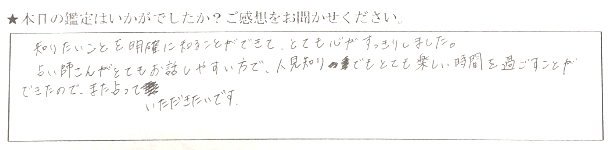 ★本日の鑑定はいかがでしたか？ご感想をお聞かせください。
知りたいことを明確に知ることができて、とても心がすっきりしました。
占い師さんがとてもお話しやすい方で、人見知りでもとても楽しい時間を過ごすことが
できたので、また占って
いただきたいです。